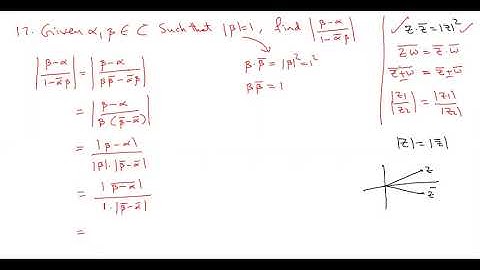 17. Given α, β ∈ ℂ such that |β|=1, find |(β-α)/(1-ᾱβ)|
|(β-α)/(1-ᾱβ)| = |(β-α)/(ββ̄-ᾱβ)|
= |(β-α)/(β(β̄-ᾱ))|
= |β-α|/(|β|·|β̄-ᾱ|)
= |β̄-ᾱ|/(1·|β̄-ᾱ|)
=
β·β̄ = |β|²=1²
ββ̄ = 1
✓ z·z̄ = |z|² ✓
z̅w̅ = z̄·w̄
z̅±̅w̅ = z̄ ± w̄
|z₁/z₂| = |z₁|/|z₂|
|z| = |z̄|
z
z̄